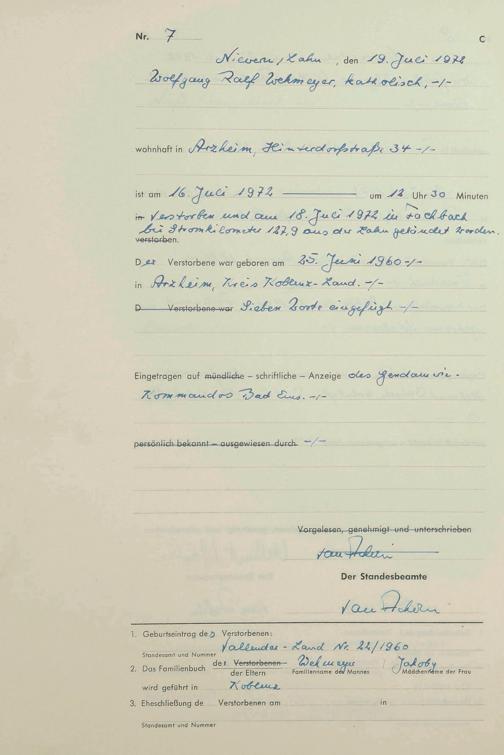 Nr. 7 C
Nievern/Lahn, den 19. Juli 1972
Wolfgang Ralf Wehmeyer, katholisch, -/-
wohnhaft in Arzheim, Hinterdorfstraße 34 -/-
ist am 16. Juli 1972 um 12 Uhr 30 Minuten
in verstorben und am 18. Juli 1972 in Fachbach
bei Stromkilometer 127,9 aus der Lahn geländet worden.
verstorben.
Der Verstorbene war geboren am 25. Juni 1960 -/-
in Arzheim, Kreis Koblenz-Land. -/-
D Verstorbene war Sieben Worte eingefügt -/-
Eingetragen auf mündliche – schriftliche – Anzeige des Gendarmerie-
Kommandos Bad Ems. -/-
persönlich bekannt – ausgewiesen durch -/-
Vorgelesen, genehmigt und unterschrieben
Der Standesbeamte
1. Geburtseintrag des Verstorbenen:
Vallendar-Land Nr. 22/1960
Standesamt und Nummer
2. Das Familienbuch der Verstorbenen Wehmeyer Jakoby
der Eltern Familienname des Mannes Mädchenname der Frau
wird geführt in Koblenz
3. Eheschließung de Verstorbenen am in
Standesamt und Nummer